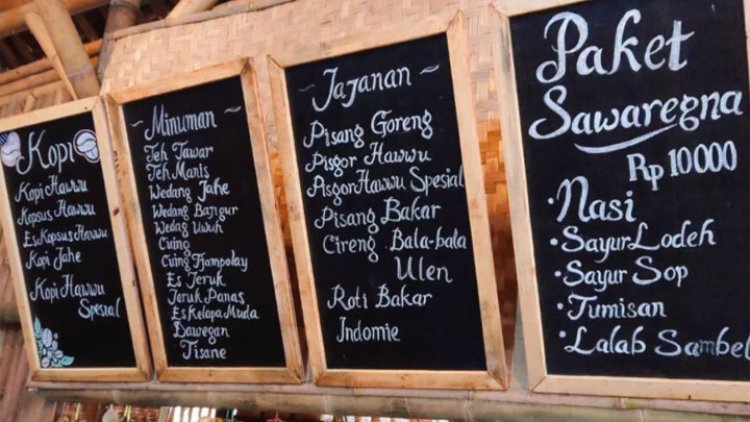 Kopi
Kopi Hawwu
Kopsus Hawwu
Es Kopsus Hawwu
Kopi Jahe
Kopi Hawwu
Spesial
~ Minuman ~
Teh Tawar
Teh Manis
Wedang Jahe
Wedang Bajigur
Wedag Uwuh
Cuing
Cuing Kampolay
Es Jeruk
Jeruk Panas
Es Kelapa Muda
Bawegan
Tisane
~ Jajanan ~
Pisang Goreng
Pisgor Hawwu
Pisgor Hawwu Spesial
Pisang Bakar
Cireng Bala-bala
Ulen
Roti Bakar
Indomie
Paket
Sawaregna
Rp 10000
• Nasi
• Sayur Lodeh
• Sayur Sop
• Tumisan
• Lalab Sambel